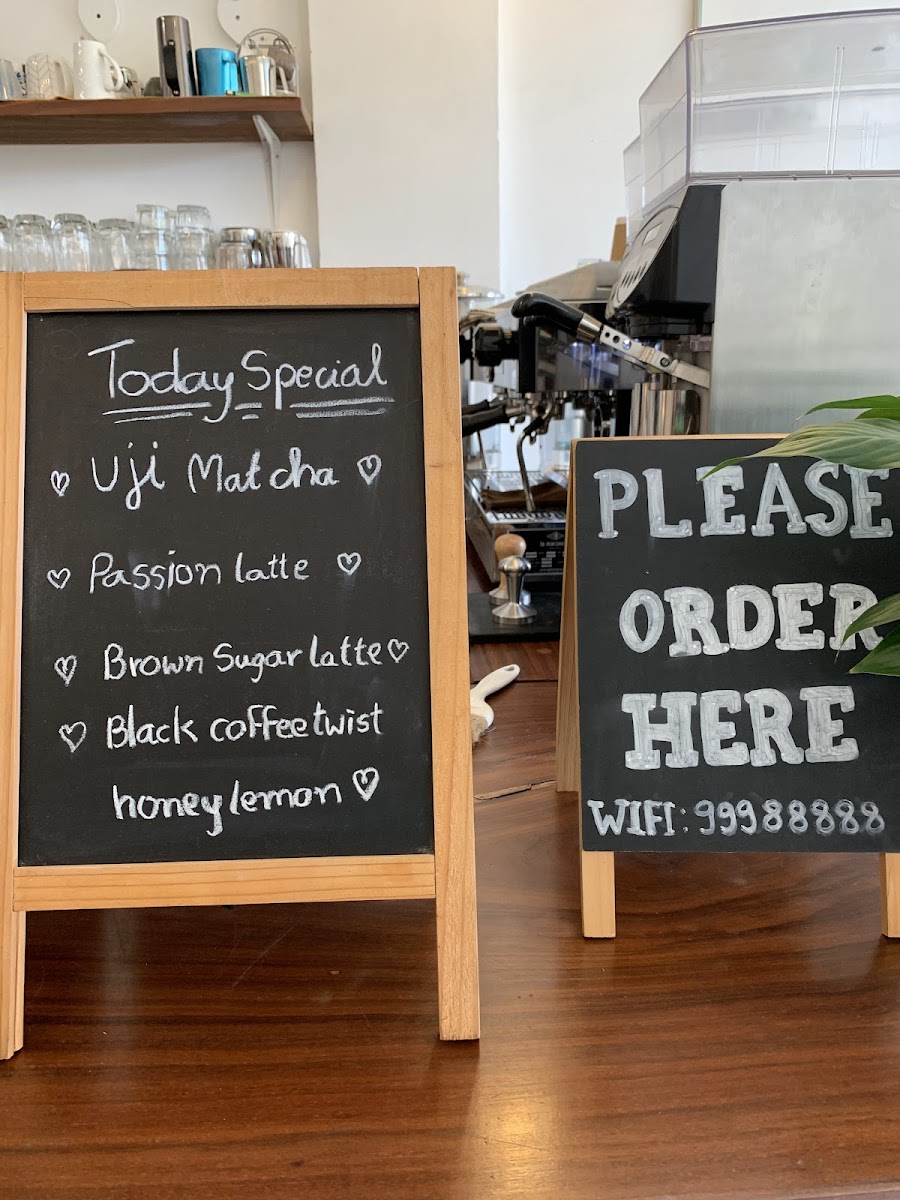 Today Special
Uji Matcha
Passion latte
Brown Sugar latte
Black coffee twist
honey lemon
PLEASE
ORDER
HERE
WIFI: 99988888